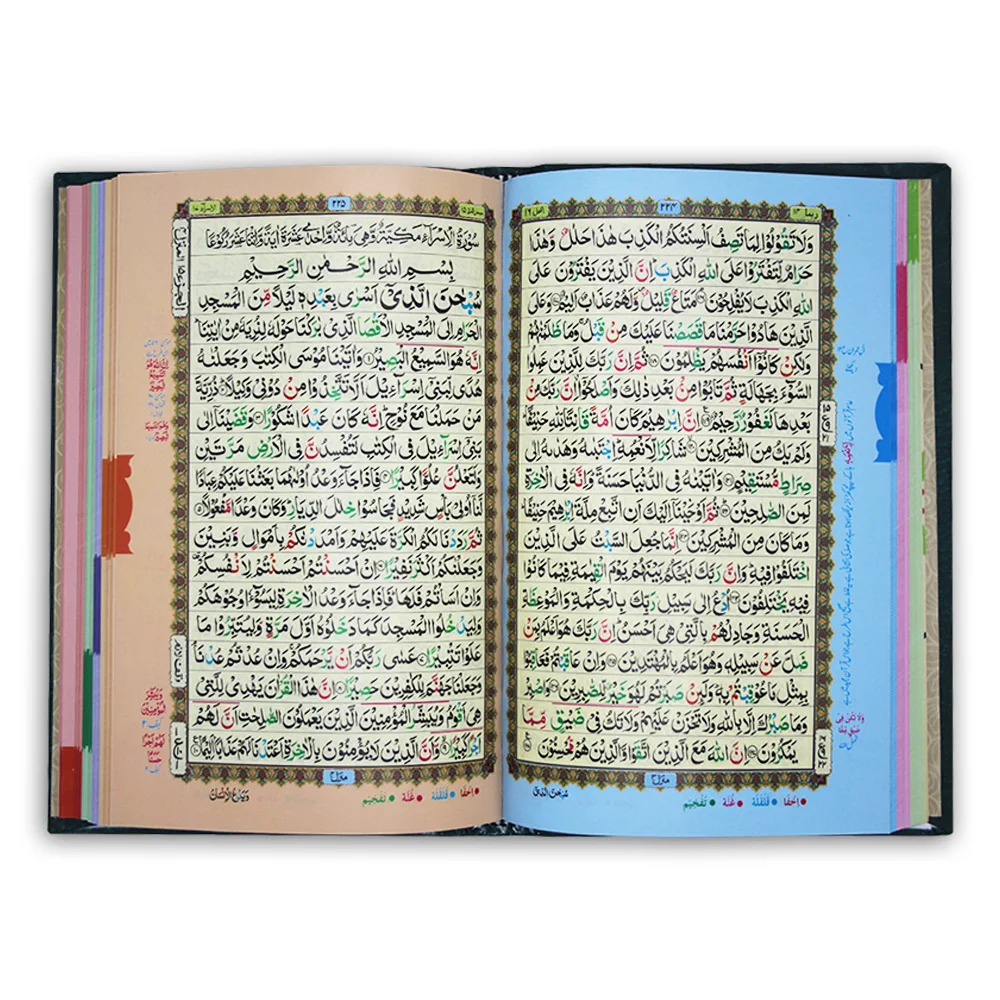 ربما ١٤
٢٢٤
النحل ١٦
وَلَا تَقُوْلُوْا لِمَا تَصِفُ اَلْسِنَتُكُمُ الْكَذِبَ هٰذَا حَلٰلٌ وَّهٰذَا
حَرَامٌ لِّتَفْتَرُوْا عَلَى اللّٰهِ الْكَذِبَ اِنَّ الَّذِيْنَ يَفْتَرُوْنَ عَلَى
اللّٰهِ الْكَذِبَ لَا يُفْلِحُوْنَ مَتَاعٌ قَلِيْلٌ وَّلَهُمْ عَذَابٌ اَلِيْمٌ وَعَلَى
الَّذِيْنَ هَادُوْا حَرَّمْنَا مَا قَصَصْنَا عَلَيْكَ مِنْ قَبْلُ وَمَا ظَلَمْنٰهُمْ
وَلٰكِنْ كَانُوْۤا اَنْفُسَهُمْ يَظْلِمُوْنَ ثُمَّ اِنَّ رَبَّكَ لِلَّذِيْنَ عَمِلُوا
السُّوْٓءَ بِجَهَالَةٍ ثُمَّ تَابُوْا مِنْۢ بَعْدِ ذٰلِكَ وَاَصْلَحُوْۤا اِنَّ رَبَّكَ مِنْۢ
بَعْدِهَا لَغَفُوْرٌ رَّحِيْمٌ اِنَّ اِبْرٰهِيْمَ كَانَ اُمَّةً قَانِتًا لِّلّٰهِ حَنِيْفًا
وَلَمْ يَكُ مِنَ الْمُشْرِكِيْنَ شَاكِرًا لِّاَنْعُمِهٖ اِجْتَبٰىهُ وَهَدٰىهُ اِلٰى
صِرَاطٍ مُّسْتَقِيْمٍ وَاٰتَيْنٰهُ فِى الدُّنْيَا حَسَنَةً وَاِنَّهٗ فِى الْاٰخِرَةِ
لَمِنَ الصّٰلِحِيْنَ ثُمَّ اَوْحَيْنَاۤ اِلَيْكَ اَنِ اتَّبِعْ مِلَّةَ اِبْرٰهِيْمَ حَنِيْفًا
وَمَا كَانَ مِنَ الْمُشْرِكِيْنَ اِنَّمَا جُعِلَ السَّبْتُ عَلَى الَّذِيْنَ
اخْتَلَفُوْا فِيْهِ وَاِنَّ رَبَّكَ لَيَحْكُمُ بَيْنَهُمْ يَوْمَ الْقِيٰمَةِ فِيْمَا كَانُوْا
فِيْهِ يَخْتَلِفُوْنَ اُدْعُ اِلٰى سَبِيْلِ رَبِّكَ بِالْحِكْمَةِ وَالْمَوْعِظَةِ
الْحَسَنَةِ وَجَادِلْهُمْ بِالَّتِىْ هِىَ اَحْسَنُ اِنَّ رَبَّكَ هُوَ اَعْلَمُ بِمَنْ
ضَلَّ عَنْ سَبِيْلِهٖ وَهُوَ اَعْلَمُ بِالْمُهْتَدِيْنَ وَاِنْ عَاقَبْتُمْ فَعَاقِبُوْا
بِمِثْلِ مَا عُوْقِبْتُمْ بِهٖ وَلَئِنْ صَبَرْتُمْ لَهُوَ خَيْرٌ لِّلصّٰبِرِيْنَ وَاصْبِرْ
وَمَا صَبْرُكَ اِلَّا بِاللّٰهِ وَلَا تَحْزَنْ عَلَيْهِمْ وَلَا تَكُ فِىْ ضَيْقٍ مِّمَّا
يَمْكُرُوْنَ اِنَّ اللّٰهَ مَعَ الَّذِيْنَ اتَّقَوْا وَّالَّذِيْنَ هُمْ مُّحْسِنُوْنَ
منزل ٣
اِخْفَا قَلْقَلَه غُنَّه تَفْخِيْم
سبحن الذی
الاسرآء ١٧
٢٢٥
سبحن الذی ١٥
سُوْرَةُ الْاِسْرَآءِ مَكِّيَّةٌ وَّهِىَ مِائَةٌ وَّاِحْدٰى عَشْرَةَ اٰيَةً وَّاثْنَا عَشَرَ رُكُوْعًا
بِسْمِ اللّٰهِ الرَّحْمٰنِ الرَّحِيْمِ
سُبْحٰنَ الَّذِىْۤ اَسْرٰى بِعَبْدِهٖ لَيْلًا مِّنَ الْمَسْجِدِ
الْحَرَامِ اِلَى الْمَسْجِدِ الْاَقْصَا الَّذِىْ بٰرَكْنَا حَوْلَهٗ لِنُرِيَهٗ مِنْ اٰيٰتِنَا
اِنَّهٗ هُوَ السَّمِيْعُ الْبَصِيْرُ وَاٰتَيْنَا مُوْسَى الْكِتٰبَ وَجَعَلْنٰهُ
هُدًى لِّبَنِىْۤ اِسْرَآءِيْلَ اَلَّا تَتَّخِذُوْا مِنْ دُوْنِىْ وَكِيْلًا ذُرِّيَّةَ
مَنْ حَمَلْنَا مَعَ نُوْحٍ اِنَّهٗ كَانَ عَبْدًا شَكُوْرًا وَقَضَيْنَاۤ اِلٰى
بَنِىْۤ اِسْرَآءِيْلَ فِى الْكِتٰبِ لَتُفْسِدُنَّ فِى الْاَرْضِ مَرَّتَيْنِ
وَلَتَعْلُنَّ عُلُوًّا كَبِيْرًا فَاِذَا جَآءَ وَعْدُ اُوْلٰىهُمَا بَعَثْنَا عَلَيْكُمْ عِبَادًا
لَّنَاۤ اُولِىْ بَاْسٍ شَدِيْدٍ فَجَاسُوْا خِلٰلَ الدِّيَارِ وَكَانَ وَعْدًا مَّفْعُوْلًا
ثُمَّ رَدَدْنَا لَكُمُ الْكَرَّةَ عَلَيْهِمْ وَاَمْدَدْنٰكُمْ بِاَمْوَالٍ وَّبَنِيْنَ
وَجَعَلْنٰكُمْ اَكْثَرَ نَفِيْرًا اِنْ اَحْسَنْتُمْ اَحْسَنْتُمْ لِاَنْفُسِكُمْ
وَاِنْ اَسَاْتُمْ فَلَهَا فَاِذَا جَآءَ وَعْدُ الْاٰخِرَةِ لِيَسُوْٓءٗا وُجُوْهَكُمْ
وَلِيَدْخُلُوا الْمَسْجِدَ كَمَا دَخَلُوْهُ اَوَّلَ مَرَّةٍ وَّلِيُتَبِّرُوْا مَا
عَلَوْا تَتْبِيْرًا عَسٰى رَبُّكُمْ اَنْ يَّرْحَمَكُمْ وَاِنْ عُدْتُّمْ عُدْنَا
وَجَعَلْنَا جَهَنَّمَ لِلْكٰفِرِيْنَ حَصِيْرًا اِنَّ هٰذَا الْقُرْاٰنَ يَهْدِىْ لِلَّتِىْ
هِىَ اَقْوَمُ وَيُبَشِّرُ الْمُؤْمِنِيْنَ الَّذِيْنَ يَعْمَلُوْنَ الصّٰلِحٰتِ اَنَّ لَهُمْ
اَجْرًا كَبِيْرًا وَّاَنَّ الَّذِيْنَ لَا يُؤْمِنُوْنَ بِالْاٰخِرَةِ اَعْتَدْنَا لَهُمْ عَذَابًا اَلِيْمًا
منزل ٤
اِخْفَا قَلْقَلَه غُنَّه تَفْخِيْم
وَيَدْعُ الْاِنْسَانُ